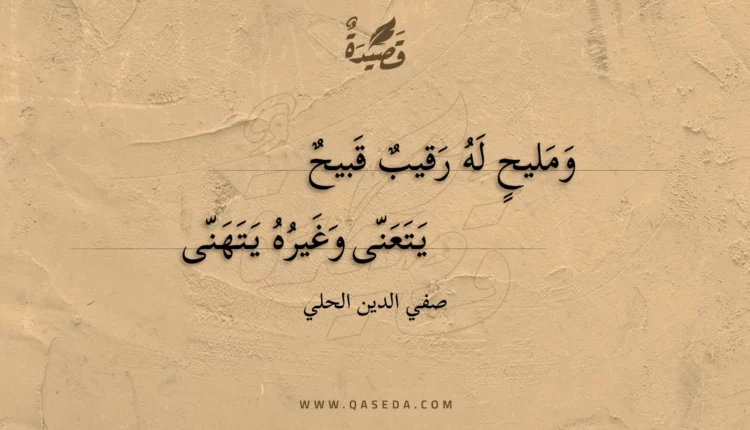 قَصيدَةٌ
وَمَليحٍ لَهُ رَقيبٌ قَبيحٌ
يَتَعَنّى وَغَيرُهُ يَتَهَنّى
صفي الدين الحلي
WWW.QASEDA.COM